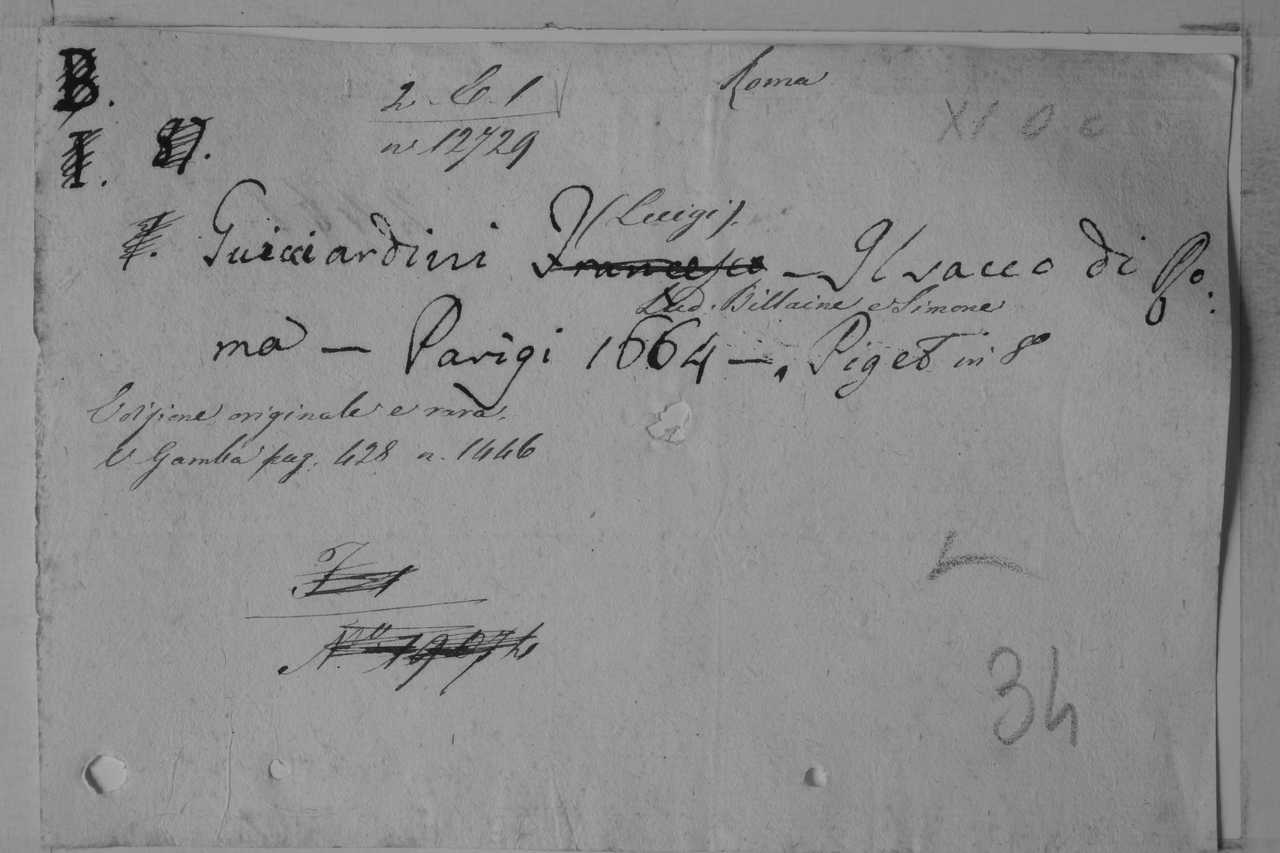 B.
2. C. 1
Roma
n 12729
XI O c
I. 8.
(Luigi).
F. Guicciardini Francesco - Il sacco di Ro:
Lud. Billaine e Simone
ma - Parigi 1664 - Piget in 8º
Edizione originale e rara.
V Gamba pag. 428 n. 1446
34